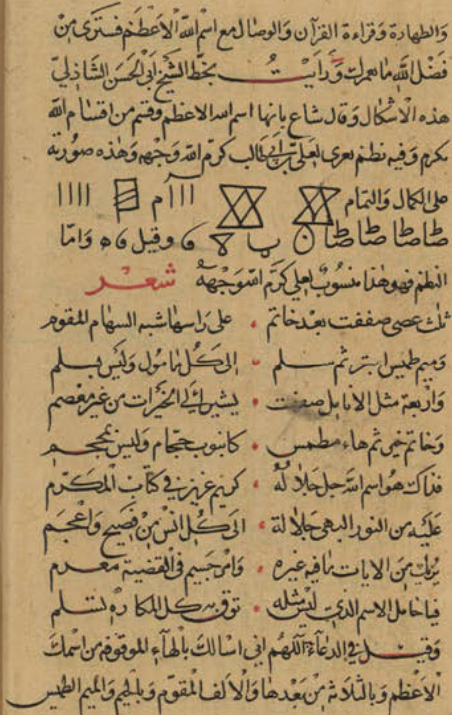 والطهارة وقراءة القرآن والوصال مع اسم الله الاعظم فسترى من
فضل الله ما يسرك ورأيت بخط الشيخ ابي الحسن الشاذلي
هذه الاشكال وقال شاع بانها اسم الله الاعظم وقسم من اقسام الله
مكرم وفيه نظم يعزى لعلي بن ابي طالب كرم الله وجهه وهذه صورته
على الكمال والتمام
وقيل واما
النظم فهو هذا منسوب لعلي كرم الله وجهه شعر
ثلث عصي صففت بعد خاتم على رأسها شبه السهام المقوم
وميم طميس ابتر ثم سلم الى كل مأمول وليس بسلم
واربعة مثل الانامل صففت يشير الى الخيرات من غير معصم
وخاتم خير ثم هاء مطمس كانبوب حجام وليس بمحجم
فذاك هو اسم الله جل جلاله كريم عزيز في كتاب المكرم
عليه من النور البهي جلالة الى كل انس من فصيح واعجم
يريك من الايات ما فيه غيره وامر جسيم في القضية معدم
فيا حامل الاسم الذي ليس مثله توق من كل المكاره تسلم
وقيل في الدعاء اللهم اني اسالك بالهاء الموقوفه من اسمك
الاعظم وبالثلاث من بعدها والالف المقوم وبالميم الطميس